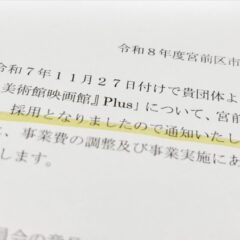 令和8年度宮前区市
令和7年11月27日付けで貴団体よ
美術館映画館』Plus」について、宮前
採用となりましたので通知いたし
、事業費の調整及び事業実施にあ
します。